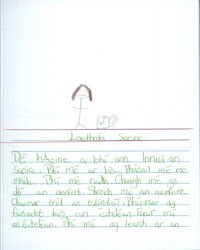 Laethanta Saoire
Dé hAoine a bhí ann. Inniu an
Saoire. Bhí mé ar bís. Phacáil mé mo
mhála. Bhí mé réidh. Chuaigh mé go
dtí an aerfort. Shroich mé an aerfort.
Chuamar tríd an slándáil. Bhíomar ag
fanacht leis an eitleán.
an eitleán. Bhí mé ag féachaint ar an